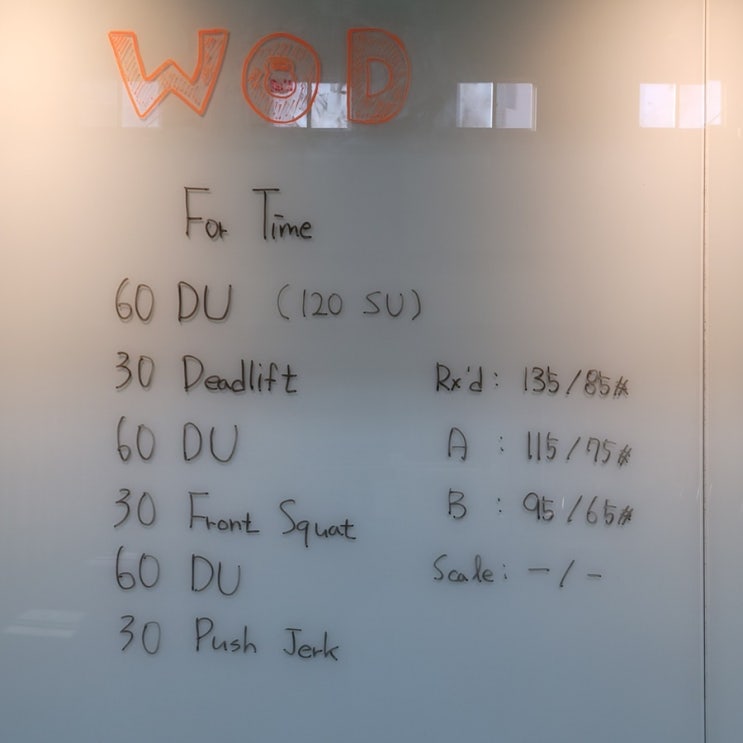 WOD
For Time
60 DU (120 SU)
30 Deadlift
60 DU
30 Front Squat
60 DU
30 Push Jerk
Rx'd: 135/85#
A : 115/75#
B : 95/65#
Scale: -/-